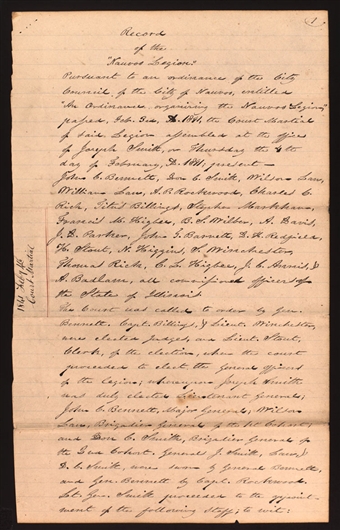 1
Record
of the
"Nauvoo Legion."
Pursuant to an ordinance of the City
Council of the City of Nauvoo, entitled
"An Ordinance organizing the Nauvoo Legion,"
passed, Feb. 3rd, 1841, the Court Martial
of said Legion assembled at the office
of Joseph Smith, on Thursday the 4th
day of February, 1841, present—
John C. Bennett, Don C. Smith, Wilson Law,
William Law, A. P. Rockwood, Charles C.
Rich, Titus Billings, Stephen Markham,
Francis M. Higbee, B. S. Wilber, A. Davis,
J. D. Parker, John G. Barnett, D. H. Redfield,
H. Stout, N. Higgins, S. Winchester,
Thomas Rich, C. L. Higbee, J. C. Annis, &
A. Badlam, all commissioned officers of
the State of Illinois
The Court was called to order by Gen.
Bennett, Capt. Billings, & Lieut. Winchester,
were elected Judges, and Lieut. Stout,
Clerk, of the election, when the court
proceeded to elect the General officers
of the Legion, whereupon Joseph Smith
was duly elected Lieutenant General,
John C. Bennett, Major General, Wilson
Law, Brigadier General of the 1st Cohort,
and Don C. Smith, Brigadier General of
the 2nd Cohort, Generals J. Smith, Law, &
D. C. Smith, were sworn by General Bennett,
and Gen. Bennett by Capt. Rockwood.
Lt. Gen. Smith proceeded to the appoint-
ment of the following staff, to wit:
1841 Feby 4th
Court Martial